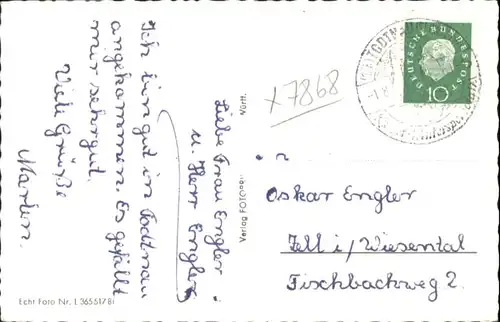 Liebe Frau Engler
u. Herr Engler
Ich bin gut in Todtnau
angekommen. Es gefällt
mir sehr gut.
Viele Grüße
Marlen.
x 7868
DEUTSCHE BUNDESPOST
10
Oskar Engler
Zell i/Wiesental
Fischbachweg 2.
Württ.
Verlag FOTO
Echt Foto Nr. L 36551781